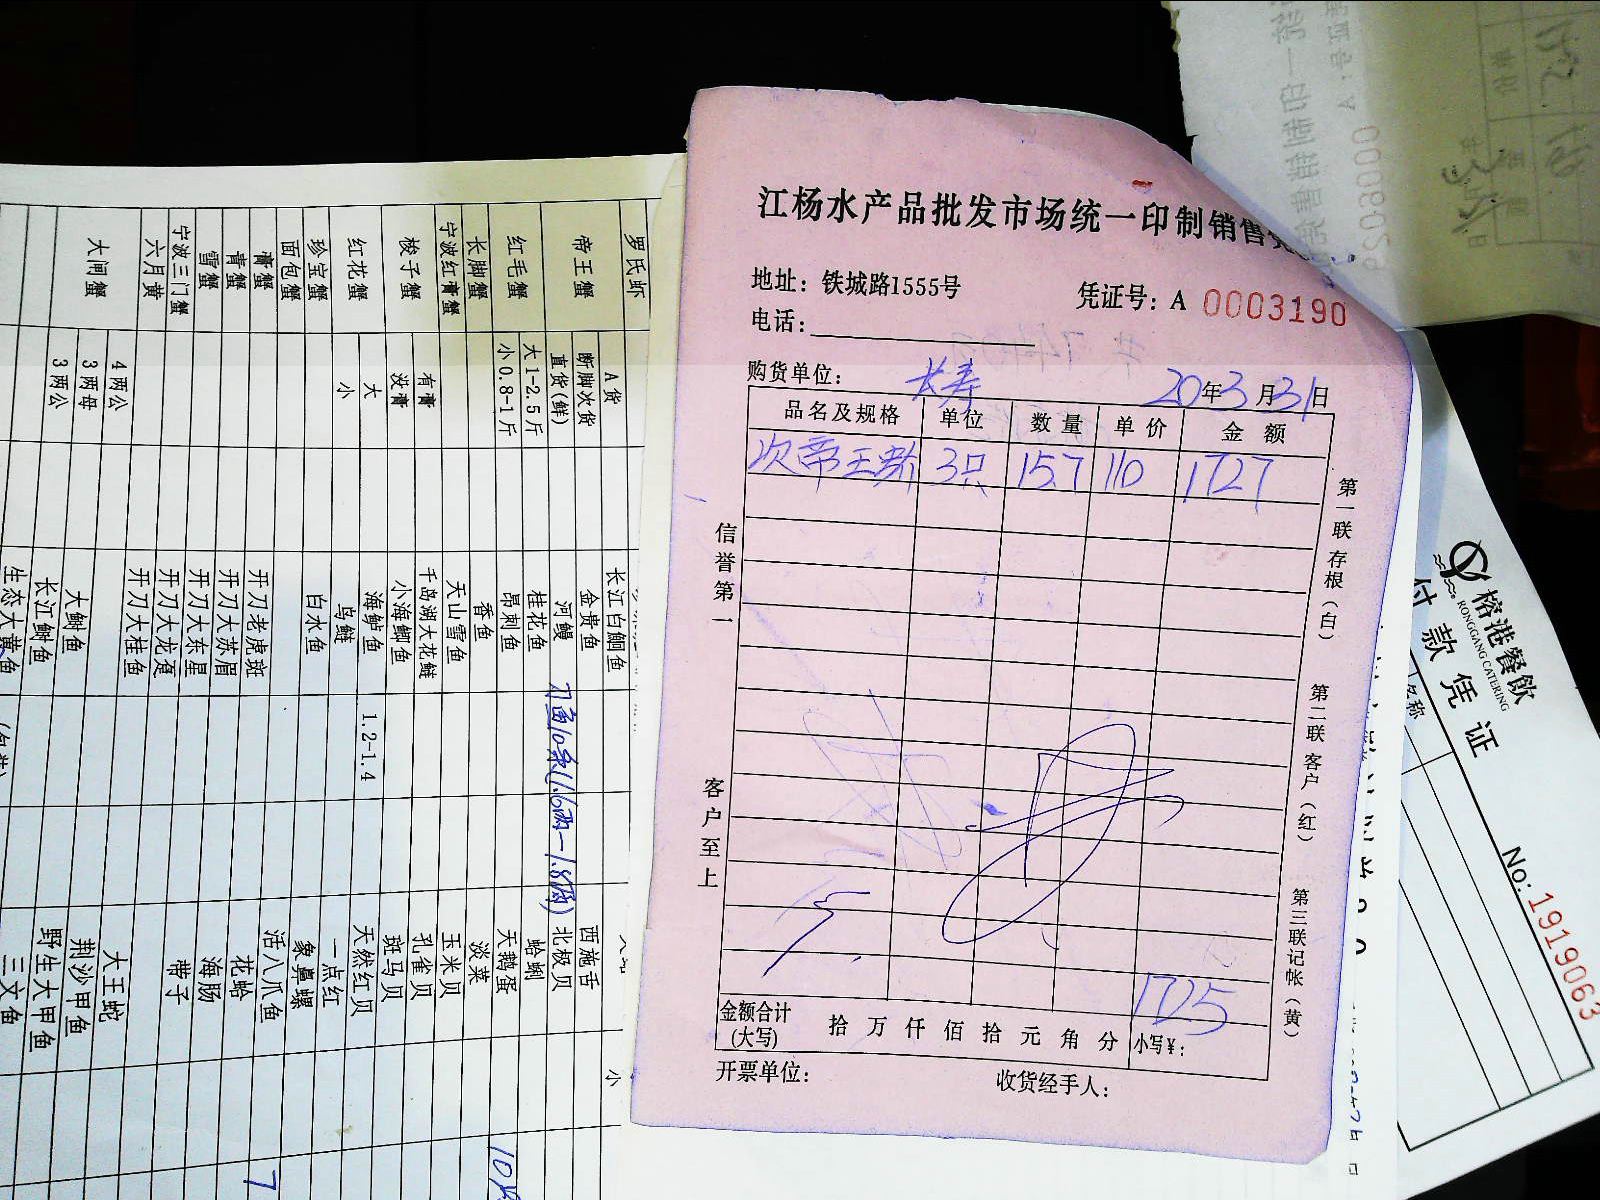 江杨水产品批发市场统一印制销售
地址：铁城路1555号
凭证号：A 0003190
电话：
购货单位：长寿
20年3月31日
品名及规格 单位 数量 单价 金额
次帝王蟹 3只 15.7 110 1727
信誉第一
客户至上
第一联 存根（白）
第二联 客户（红）
第三联 记帐（黄）
1725
金额合计(大写) 拾 万 仟 佰 拾 元 角 分 小写¥：
开票单位：
收货经手人：
罗氏虾
帝王蟹 A货
断脚次货
直货(鲜)
红毛蟹 大1-2.5斤
小0.8-1斤
长脚蟹
宁波红膏蟹
梭子蟹 有膏
没膏
红花蟹 大
小
珍宝蟹
面包蟹
膏蟹
青蟹
雪蟹
宁波三门蟹
六月黄
大闸蟹 4两公
3两母
3两公
长江白鮰鱼
金贵鱼
河鳗
桂花鱼
昂刺鱼
香鱼
天山雪鱼
千岛湖大花鲢
小海鲫鱼
海鲈鱼 1.2-1.4
鸟鲢
白水鱼
开刀老虎斑
开刀大苏眉
开刀大东星
开刀大龙趸
开刀大桂鱼
大鲥鱼
长江鲥鱼
生态大黄鱼
刀鱼10条(1.6两-1.8两)
西施舌
北极贝
蛤蜊
天鹅蛋
淡菜
玉米贝
孔雀贝
斑马贝
天然红贝
一点红
象鼻螺
活八爪鱼
花蛤
海肠
带子
大王蛇
荆沙甲鱼
野生大甲鱼
三文鱼
小
7
榕港餐饮
RONGGANG CATERING
付款凭证
名称
No: 1919063